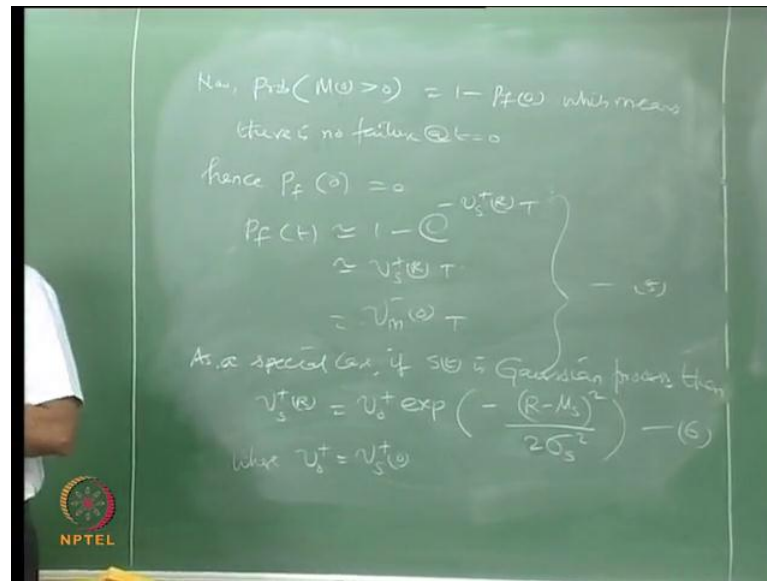 Now, Prob(M(0) > 0) = 1 - Pf(0) which means
there is no failure @ t=0
hence Pf(0) = 0
Pf(t) ≃ 1 - e^{-ν_s^+(R) T}
≃ ν_s^+(R) T
= ν_m^-(0) T — (5)
As a special case, if S(t) is Gaussian process then
ν_s^+(R) = ν_0^+ exp(-(R-M_s)^2 / 2σ_s^2) — (6)
where ν_0^+ = ν_s^+(0)
NPTEL